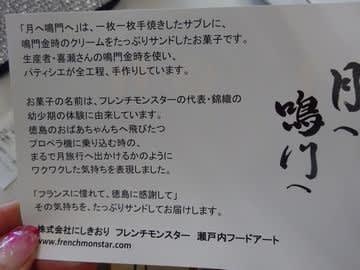 「月へ鳴門へ」は、一枚一枚手焼きしたサブレに、
鳴門金時のクリームをたっぷりサンドしたお菓子です。
生産者・喜瀬さんの鳴門金時を使い、
パティシエが全工程、手作りしています。
お菓子の名前は、フレンチモンスターの代表・錦織の
幼少期の体験に由来しています。
徳島のおばあちゃんちへ飛びたつ
プロペラ機に乗り込む時の、
まるで月旅行へ出かけるかのように
ワクワクした気持ちを表現しました。
「フランスに憧れて、徳島に感謝して」
その気持ちを、たっぷりサンドしてお届けします。
株式会社にしきおり フレンチモンスター 瀬戸内フードアート
www.frenchmonstar.com
月へ
鳴門へ